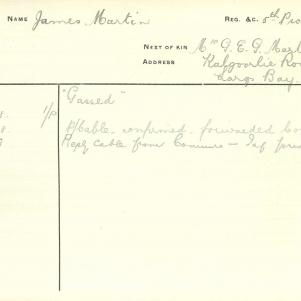 NAME James Martin REG. &C. 5th Pio
NEXT OF KIN Mrs G. E. G. Mart
ADDRESS Kalgoorlie Roa
Largs Bay.
"Gassed"
8. 1/P P/Cable confirmed forwarded
Reply cable from Commrs —